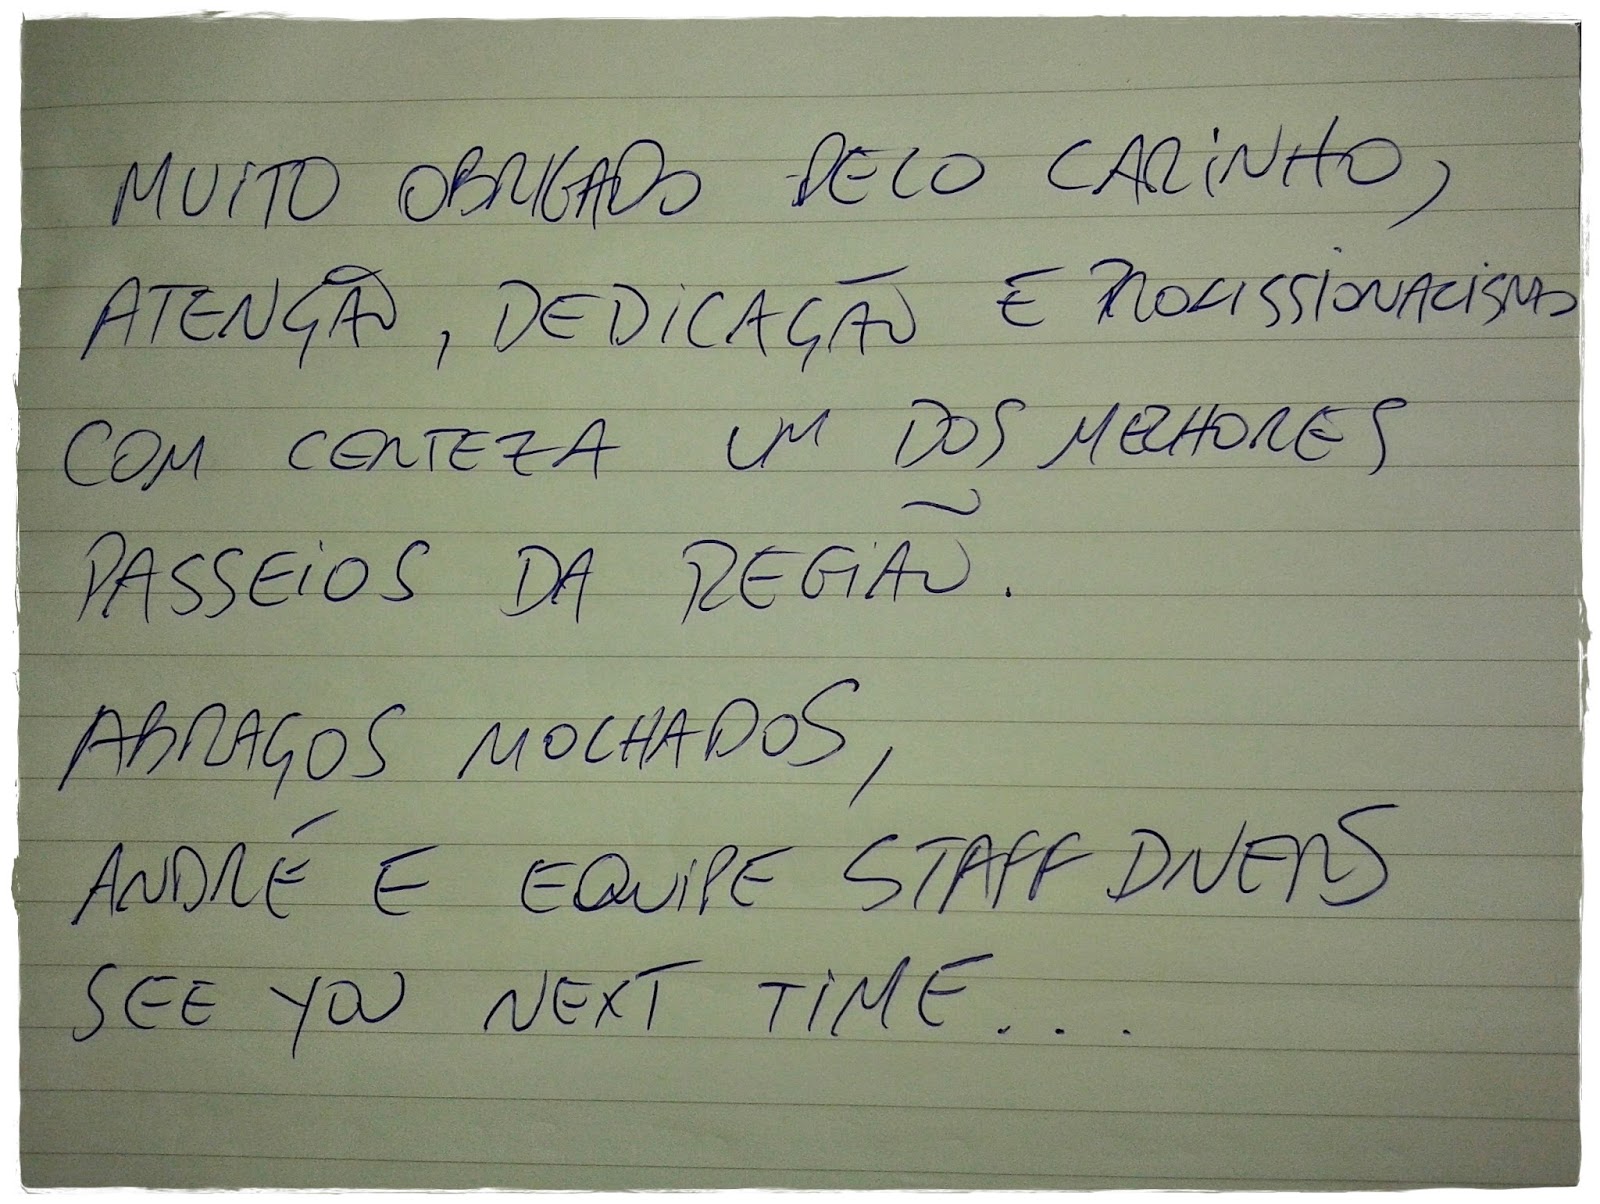 MUITO OBRIGADO PELO CARINHO,
ATENÇÃO, DEDICAÇÃO E PROFISSIONALISMO
COM CERTEZA UM DOS MELHORES
PASSEIOS DA REGIÃO.
ABRAÇOS MOLHADOS,
ANDRÉ E EQUIPE STAFF DIVERS
SEE YOU NEXT TIME...